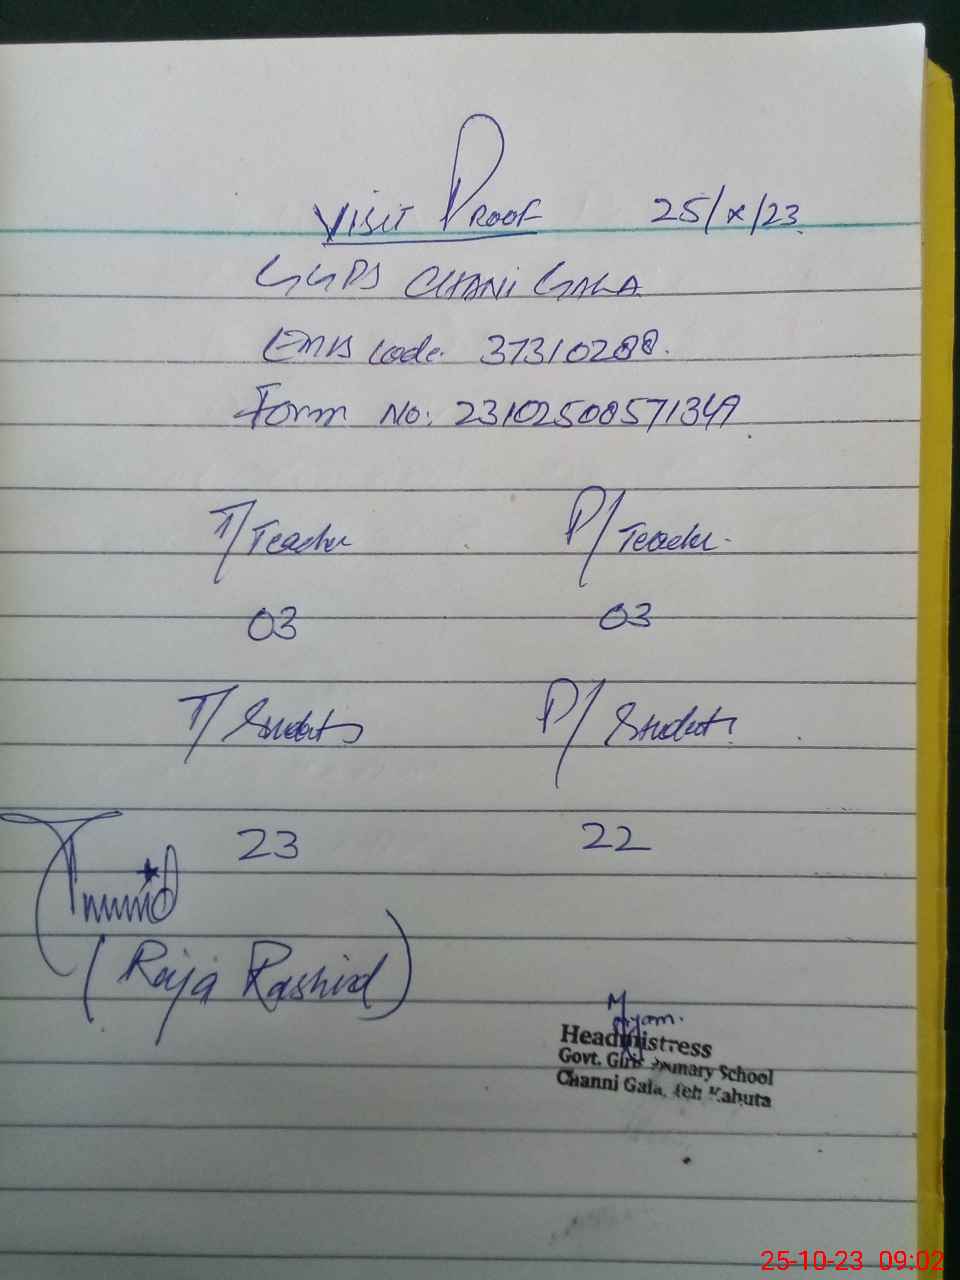 VISIT PROOF 25/x/23
GGPS CHANI GALA
EMIS Code. 37310288.
Form No: 23102508571349
T/Teacher P/Teacher.
03 03
T/Students P/Students
23 22
(Raja Rashid)
Headmistress
Govt. Girls Primary School
Channi Gala, Teh Kahuta
25-10-23 09:02